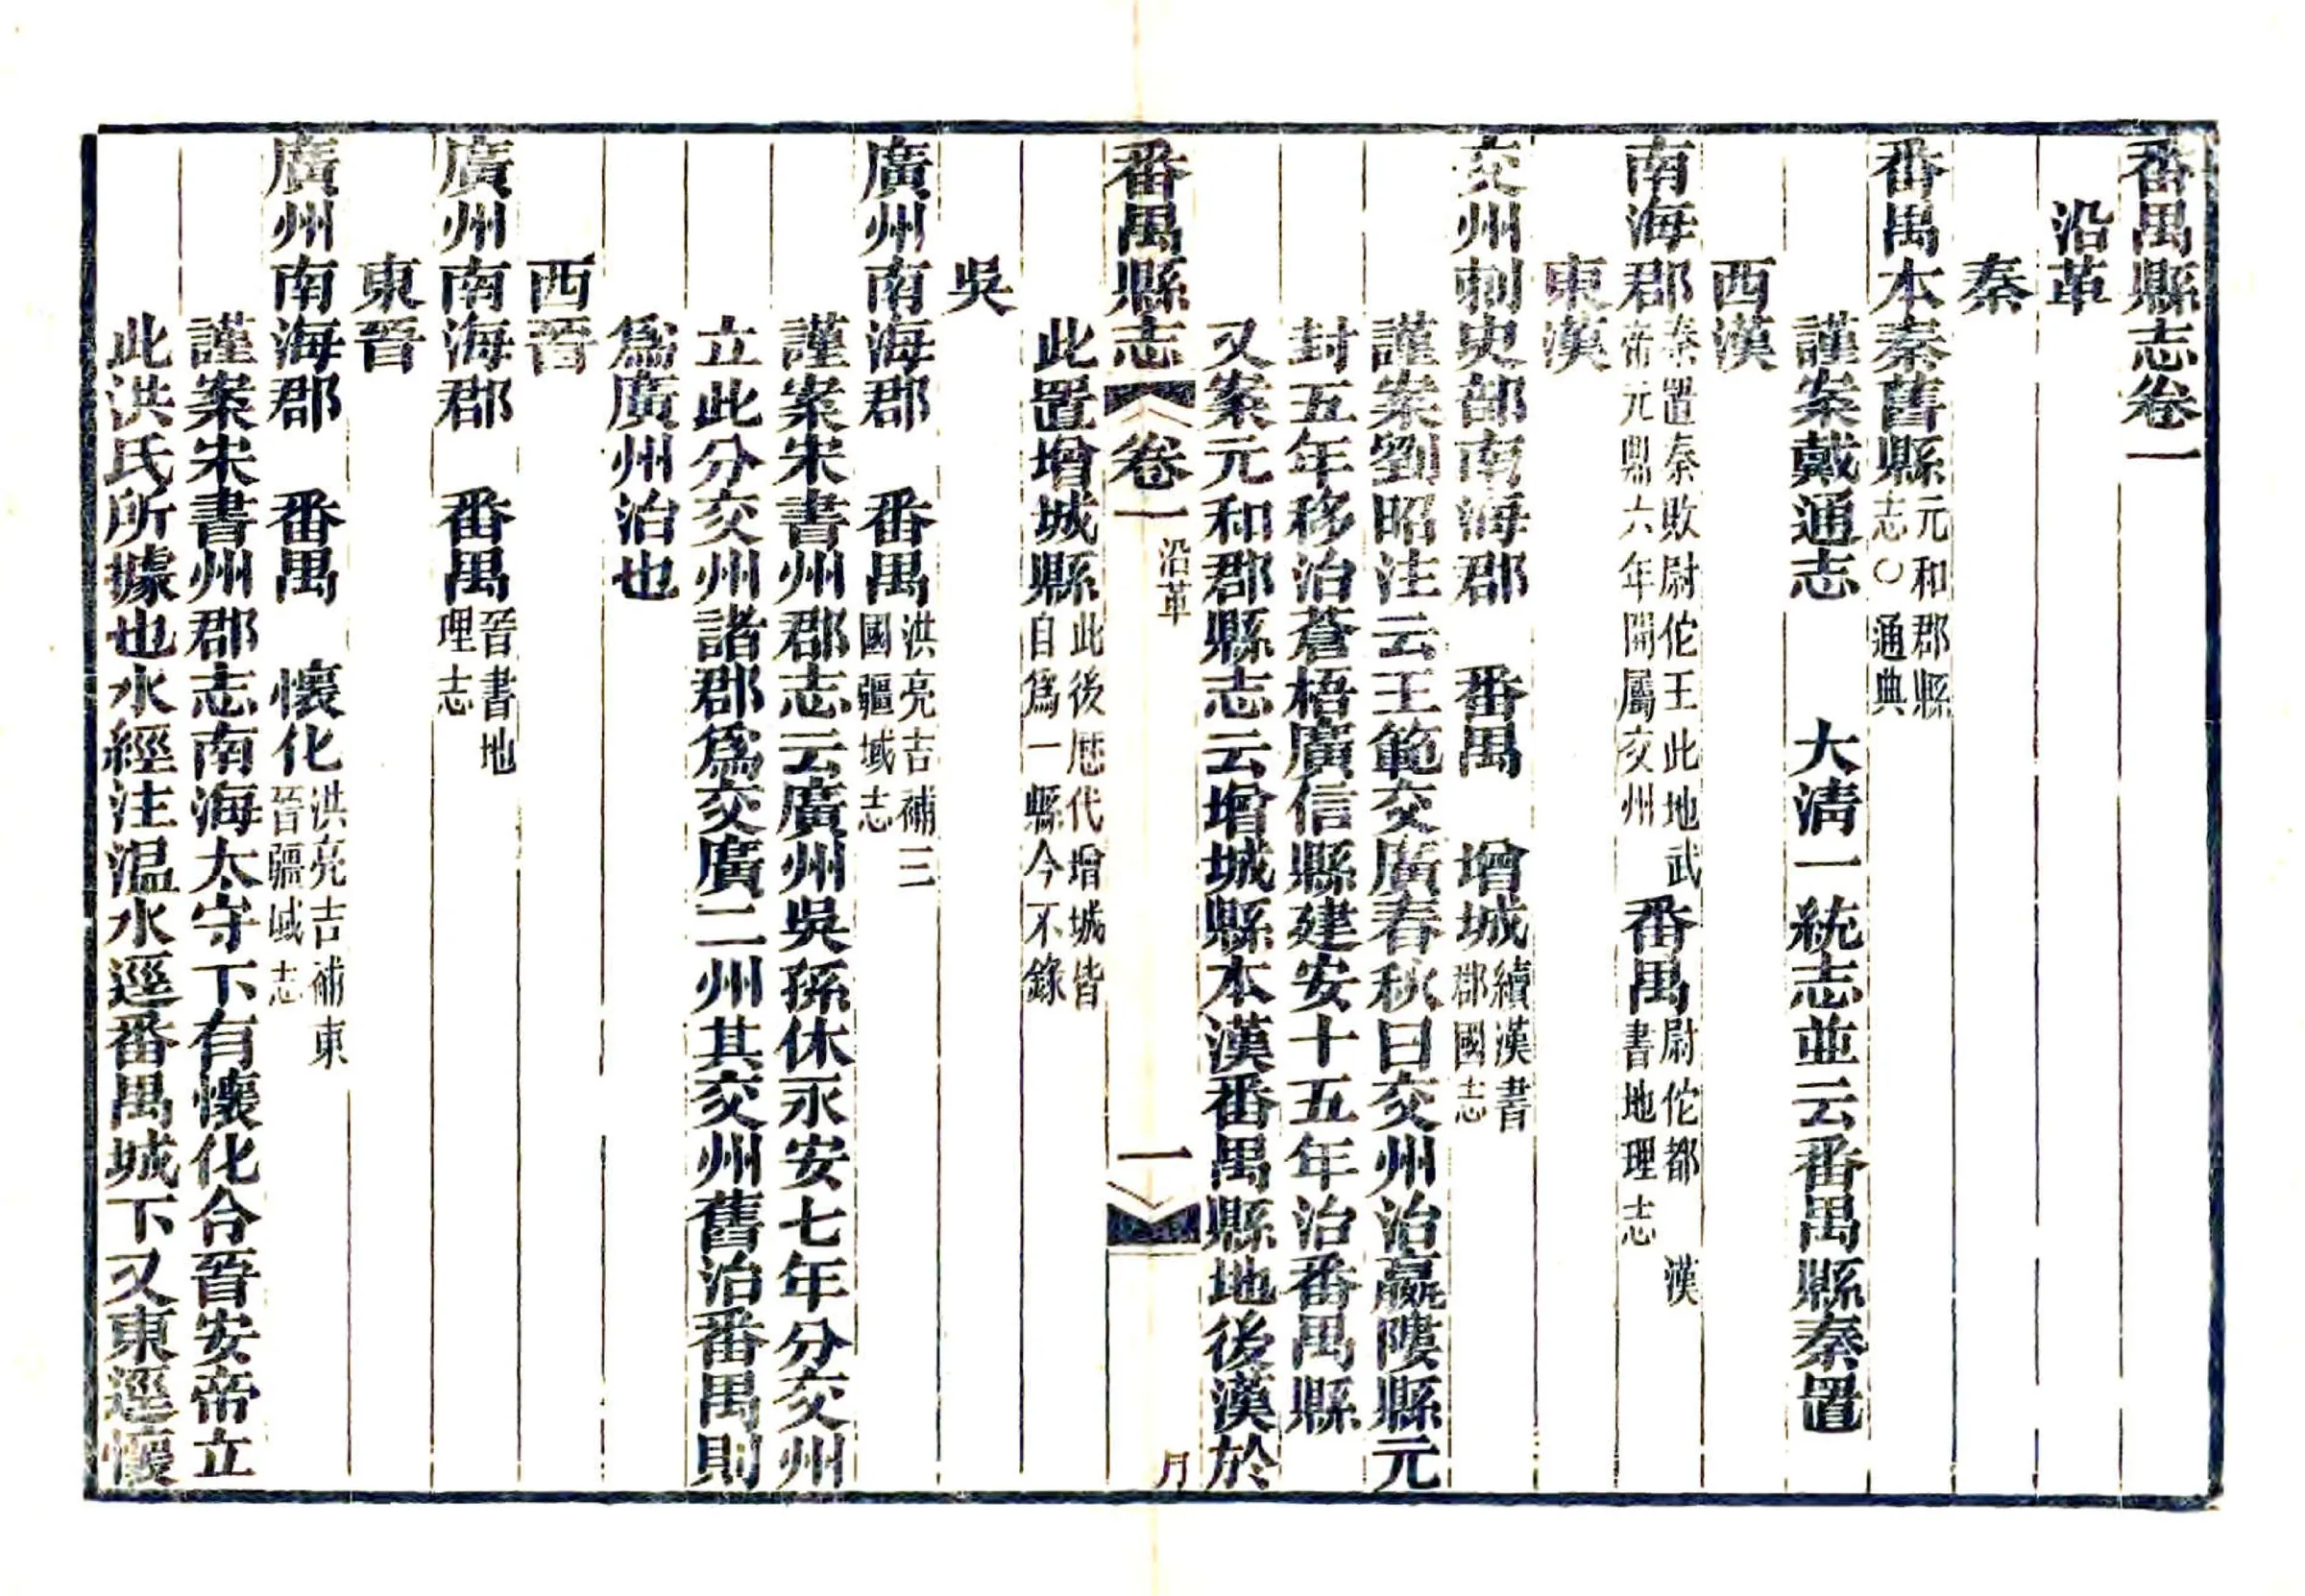 番禺縣志卷一
沿革
秦
番禺本秦舊縣元和郡縣志○通典
謹案戴通志 大清一統志並云番禺縣秦置
西漢
南海郡秦置秦敗尉佗王此地武帝元鼎六年開屬交州番禺尉佗都 漢書地理志
東漢
交州刺史部南海郡 番禺 增城續漢書郡國志
謹案劉昭注云王範交廣春秋曰交州治羸𨻻縣元
封五年移治蒼梧廣信縣建安十五年治番禺縣
又案元和郡縣志云增城縣本漢番禺縣地後漢於
番禺縣志 卷一 沿革 一
此置增城縣此後厯代增城皆自爲一縣今不錄
吳
廣州南海郡 番禺洪亮吉補三國疆域志
謹案宋書州郡志云廣州吳孫休永安七年分交州
立此分交州諸郡爲交廣二州其交州舊治番禺則
爲廣州治也
西晉
廣州南海郡 番禺晉書地理志
東晉
廣州南海郡 番禺 懷化洪亮吉補東晉疆域志
謹案宋書州郡志南海太守下有懷化令晉安帝立
此洪氏所據也水經注温水逕番禺城下又東逕懷